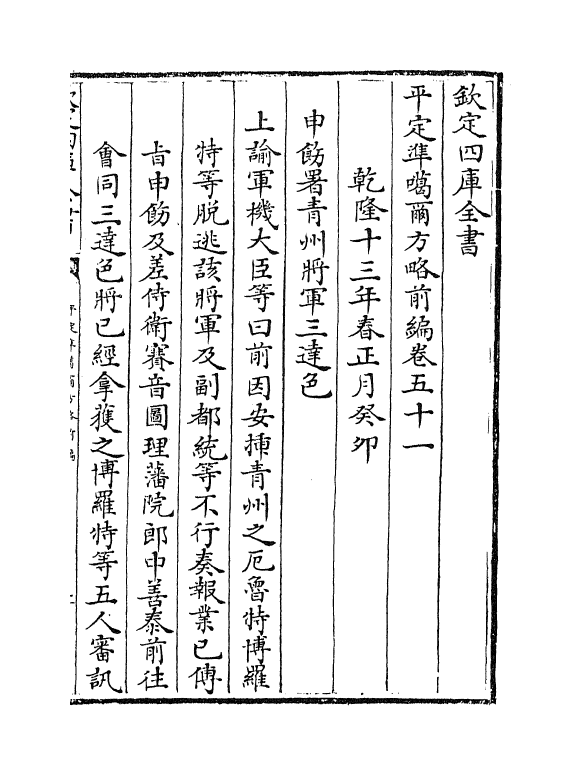 欽定四庫全書
平定準噶爾方略前編卷五十一
乾隆十三年春正月癸卯
申飭署青州將軍三達色
上諭軍機大臣等曰前因安揷青州之厄魯特博羅
特等脫逃該將軍及副都統等不行奏報業已傳
旨申飭及差侍衛賽音圖理藩院郎中善泰前往
會同三達色將已經拿獲之博羅特等五人審訊